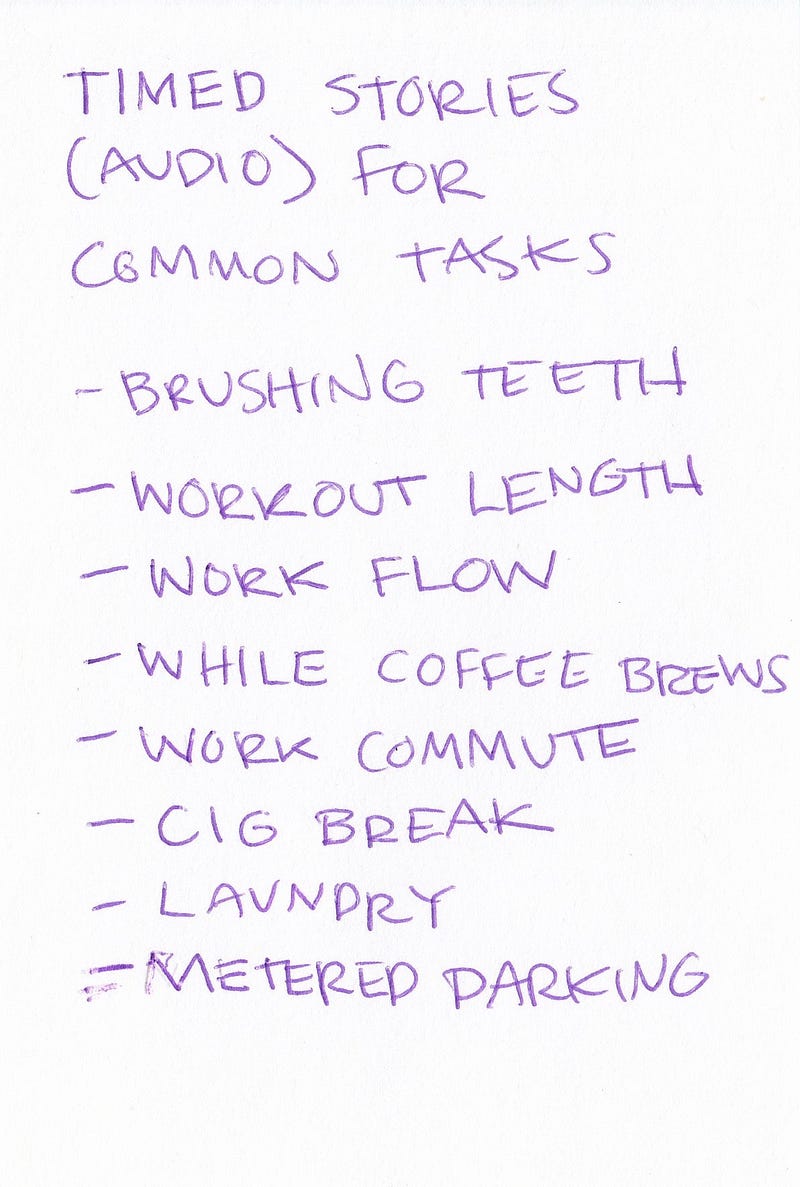 TIMED STORIES
(AUDIO) FOR
COMMON TASKS
- BRUSHING TEETH
- WORKOUT LENGTH
- WORK FLOW
- WHILE COFFEE BREWS
- WORK COMMUTE
- CIG BREAK
- LAUNDRY
- METERED PARKING